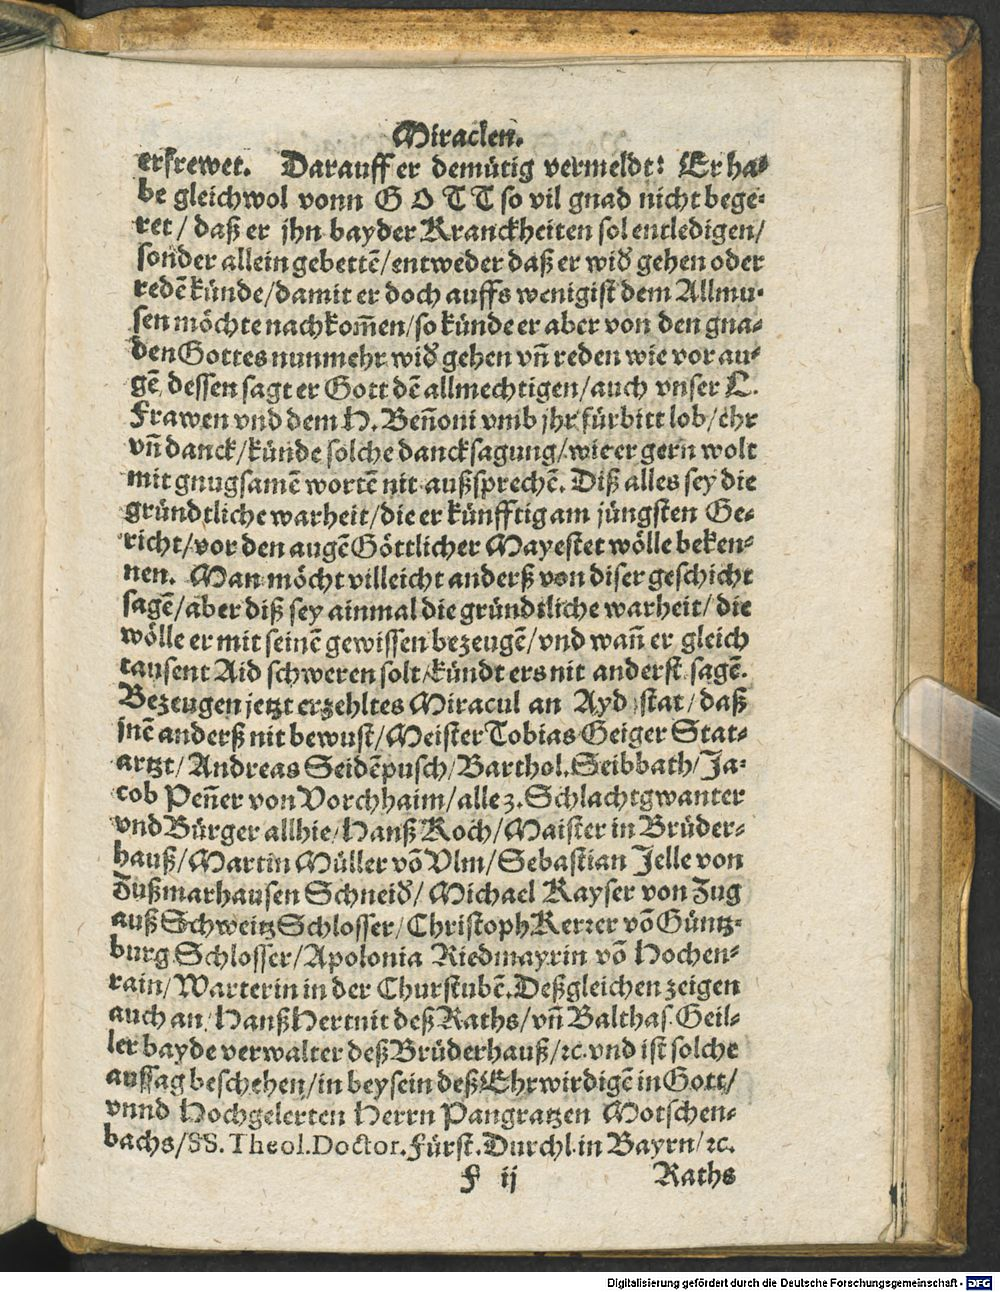 Miracken.
erfrewet. Darauff er demütig vermeldt: Er ha-
be gleichwol vonn GOTT so vil gnad nicht bege-
ret / daß er jhn bayder Kranckheiten sol entledigen/
sonder allein gebettē/entweder daß er wid̕ gehen oder
redē künde/damit er doch auffs wenigist dem Allmu-
sen möchte nachkom̄en/so künde er aber von den gna-
den Gottes nunmehr wid̕ gehen vn̄ reden wie vor au-
gē, dessen sagt er Gott dē allmechtigen/auch vnser L.
Frawen vnd dem H. Ben̄oni vmb jhr fürbitt lob/ehr
vn̄ danck/künde solche dancksagung/wie er gern wolt
mit gnugsamē wortē nit außsprechē. Diß alles sey die
gründtliche warheit/die er künfftig am jüngsten Ge-
richt/vor den augē Göttlicher Mayestet wölle beken-
nen. Man möcht villeicht anderß von diser geschicht
sagē/aber diß sey ainmal die gründtliche warheit/die
wölle er mit seinē gewissen bezeugē/vnd wan̄ er gleich
tausent Aid schweren solt/kündt ers nit anderst sagē.
Bezeugen jetzt erzehltes Miracul an Ayd stat/daß
jnē anderß nit bewust/Meister Tobias Geiger Stat-
artzt/Andreas Seidēpusch/Barthol. Seibbath/Ja-
cob Pen̄er von Vorchhaim/alle 3. Schlachtgwanter
vnd Bürger allhie/Hanß Koch/Maister in Brüder-
hauß/Martin Müller vō Vlm/Sebastian Jelle von
Zußmarhausen Schneid̕/Michael Kayser von Zug
auß Schweitz Schlosser/Christoph Kerrer vō Güntz-
burg Schlosser/Apolonia Riedmayrin vō Hochen-
rain/Warterin in der Churstubē. Deßgleichen zeigen
auch an/Hanß Hertnit deß Raths/vn̄ Balthas. Geil-
ler bayde verwalter deß Brüderhauß/ꝛc. vnd ist solche
aussag beschehen/in beysein deß Ehrwirdigē in Gott/
vnnd Hochgelerten Herrn Pangratzen Motschen-
bachs/SS. Theol. Doctor. Fürst. Durchl. in Bayrn/ꝛc.
F ij Raths
Digitalisierung gefördert durch die Deutsche Forschungsgemeinschaft - DFG